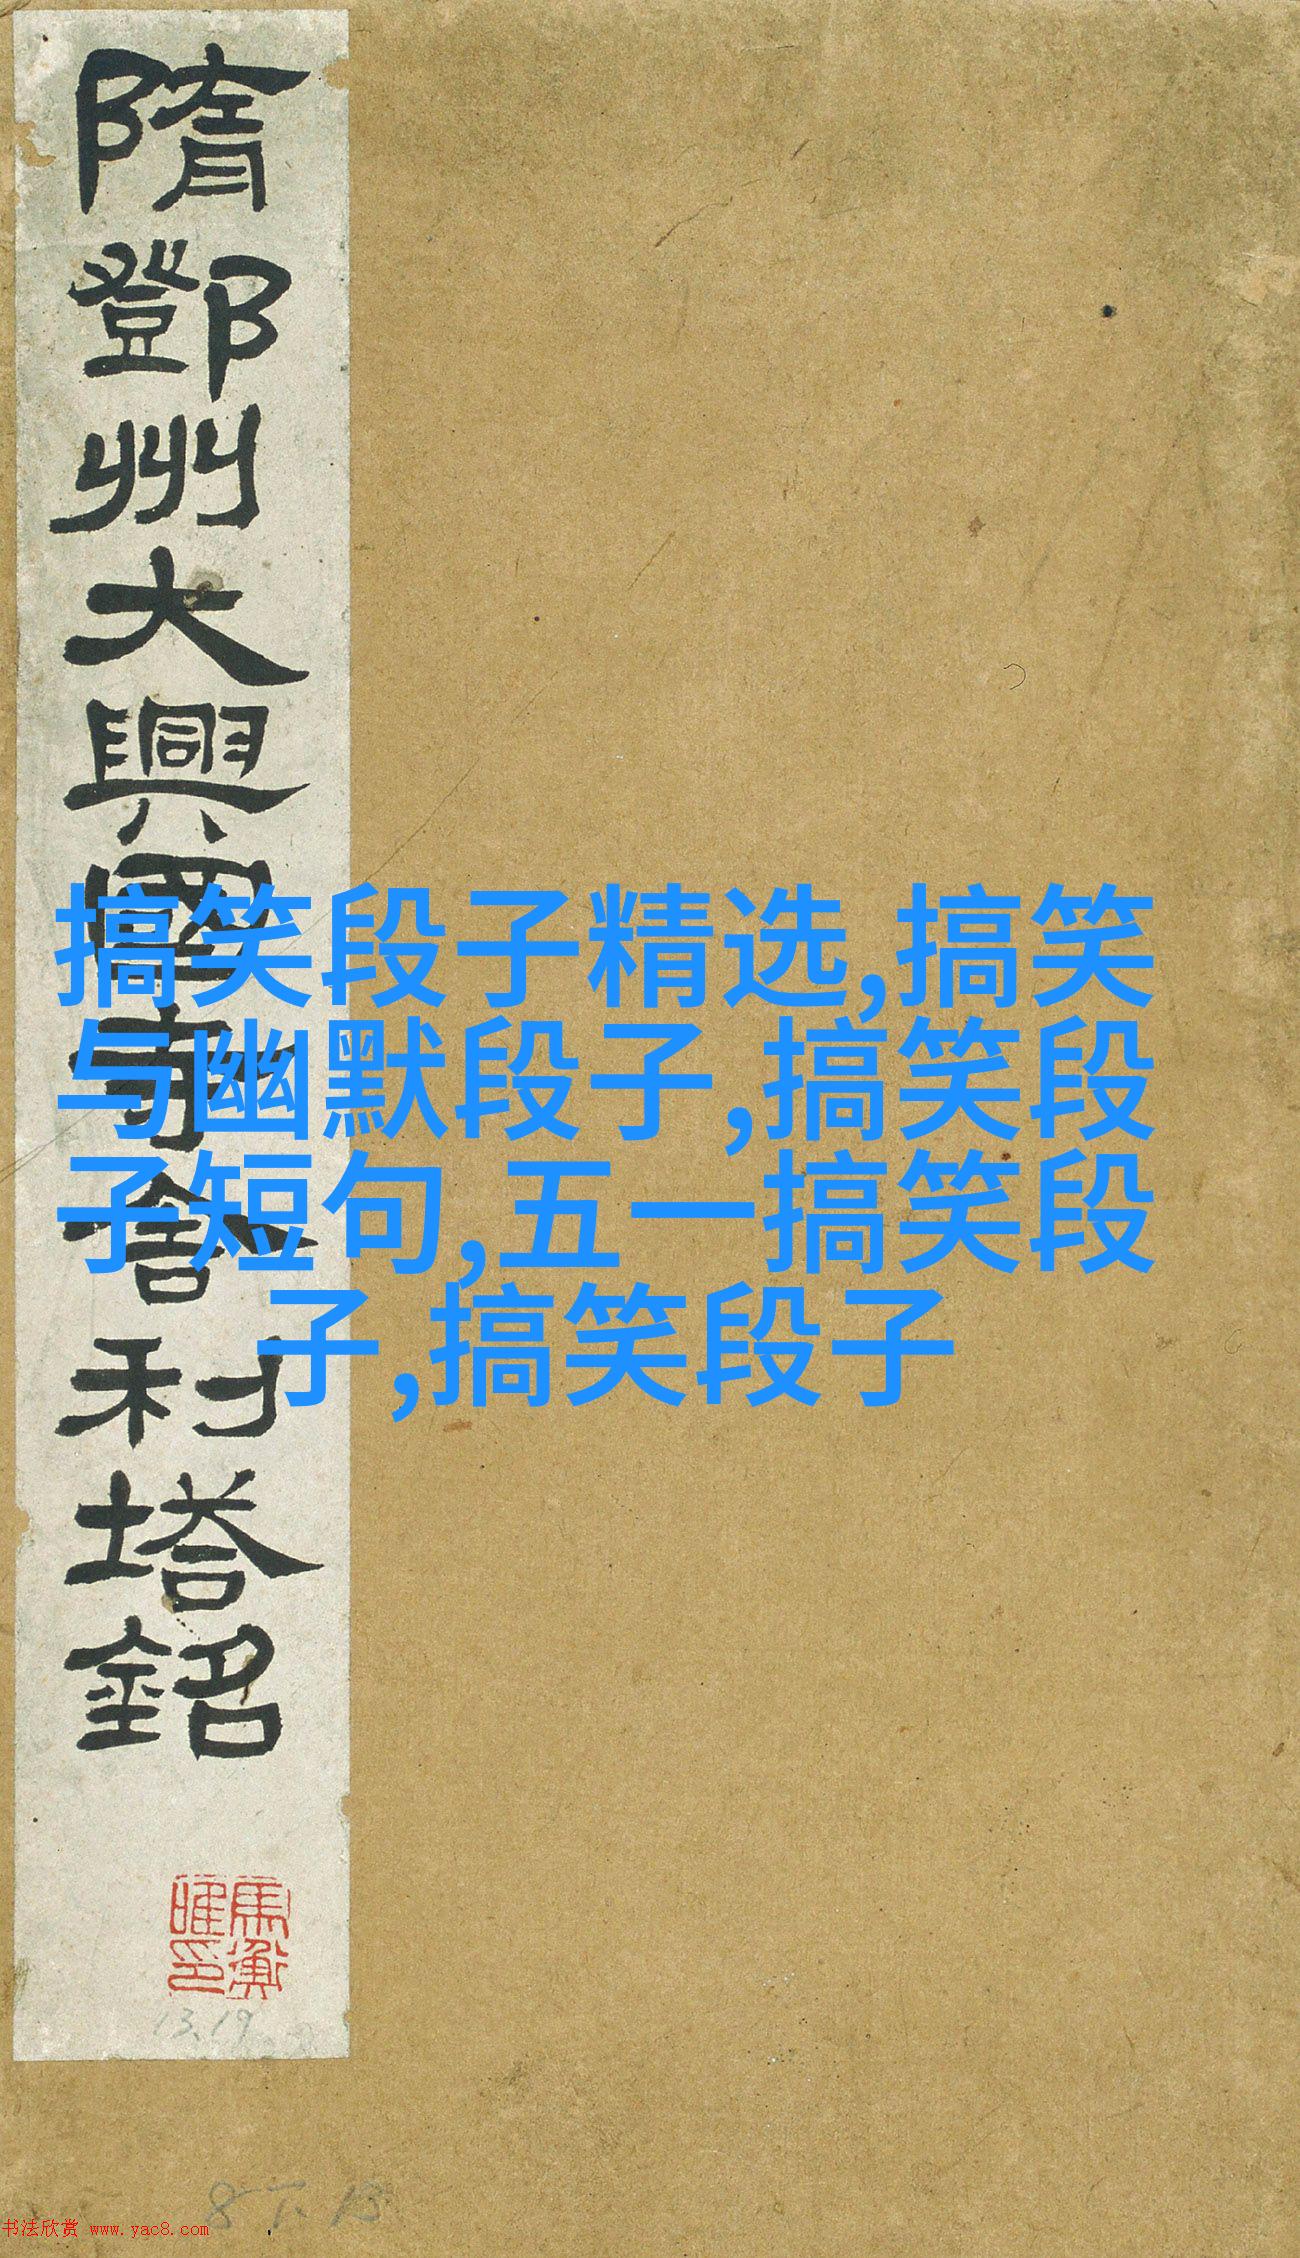 隋鄧州大興國寺舍利塔銘
搞笑段子精选,搞笑
与幽默段子,搞笑段
子短句,五一搞笑段
子,搞笑段子
13.19
8下13
书法欣赏 www.yac8.com